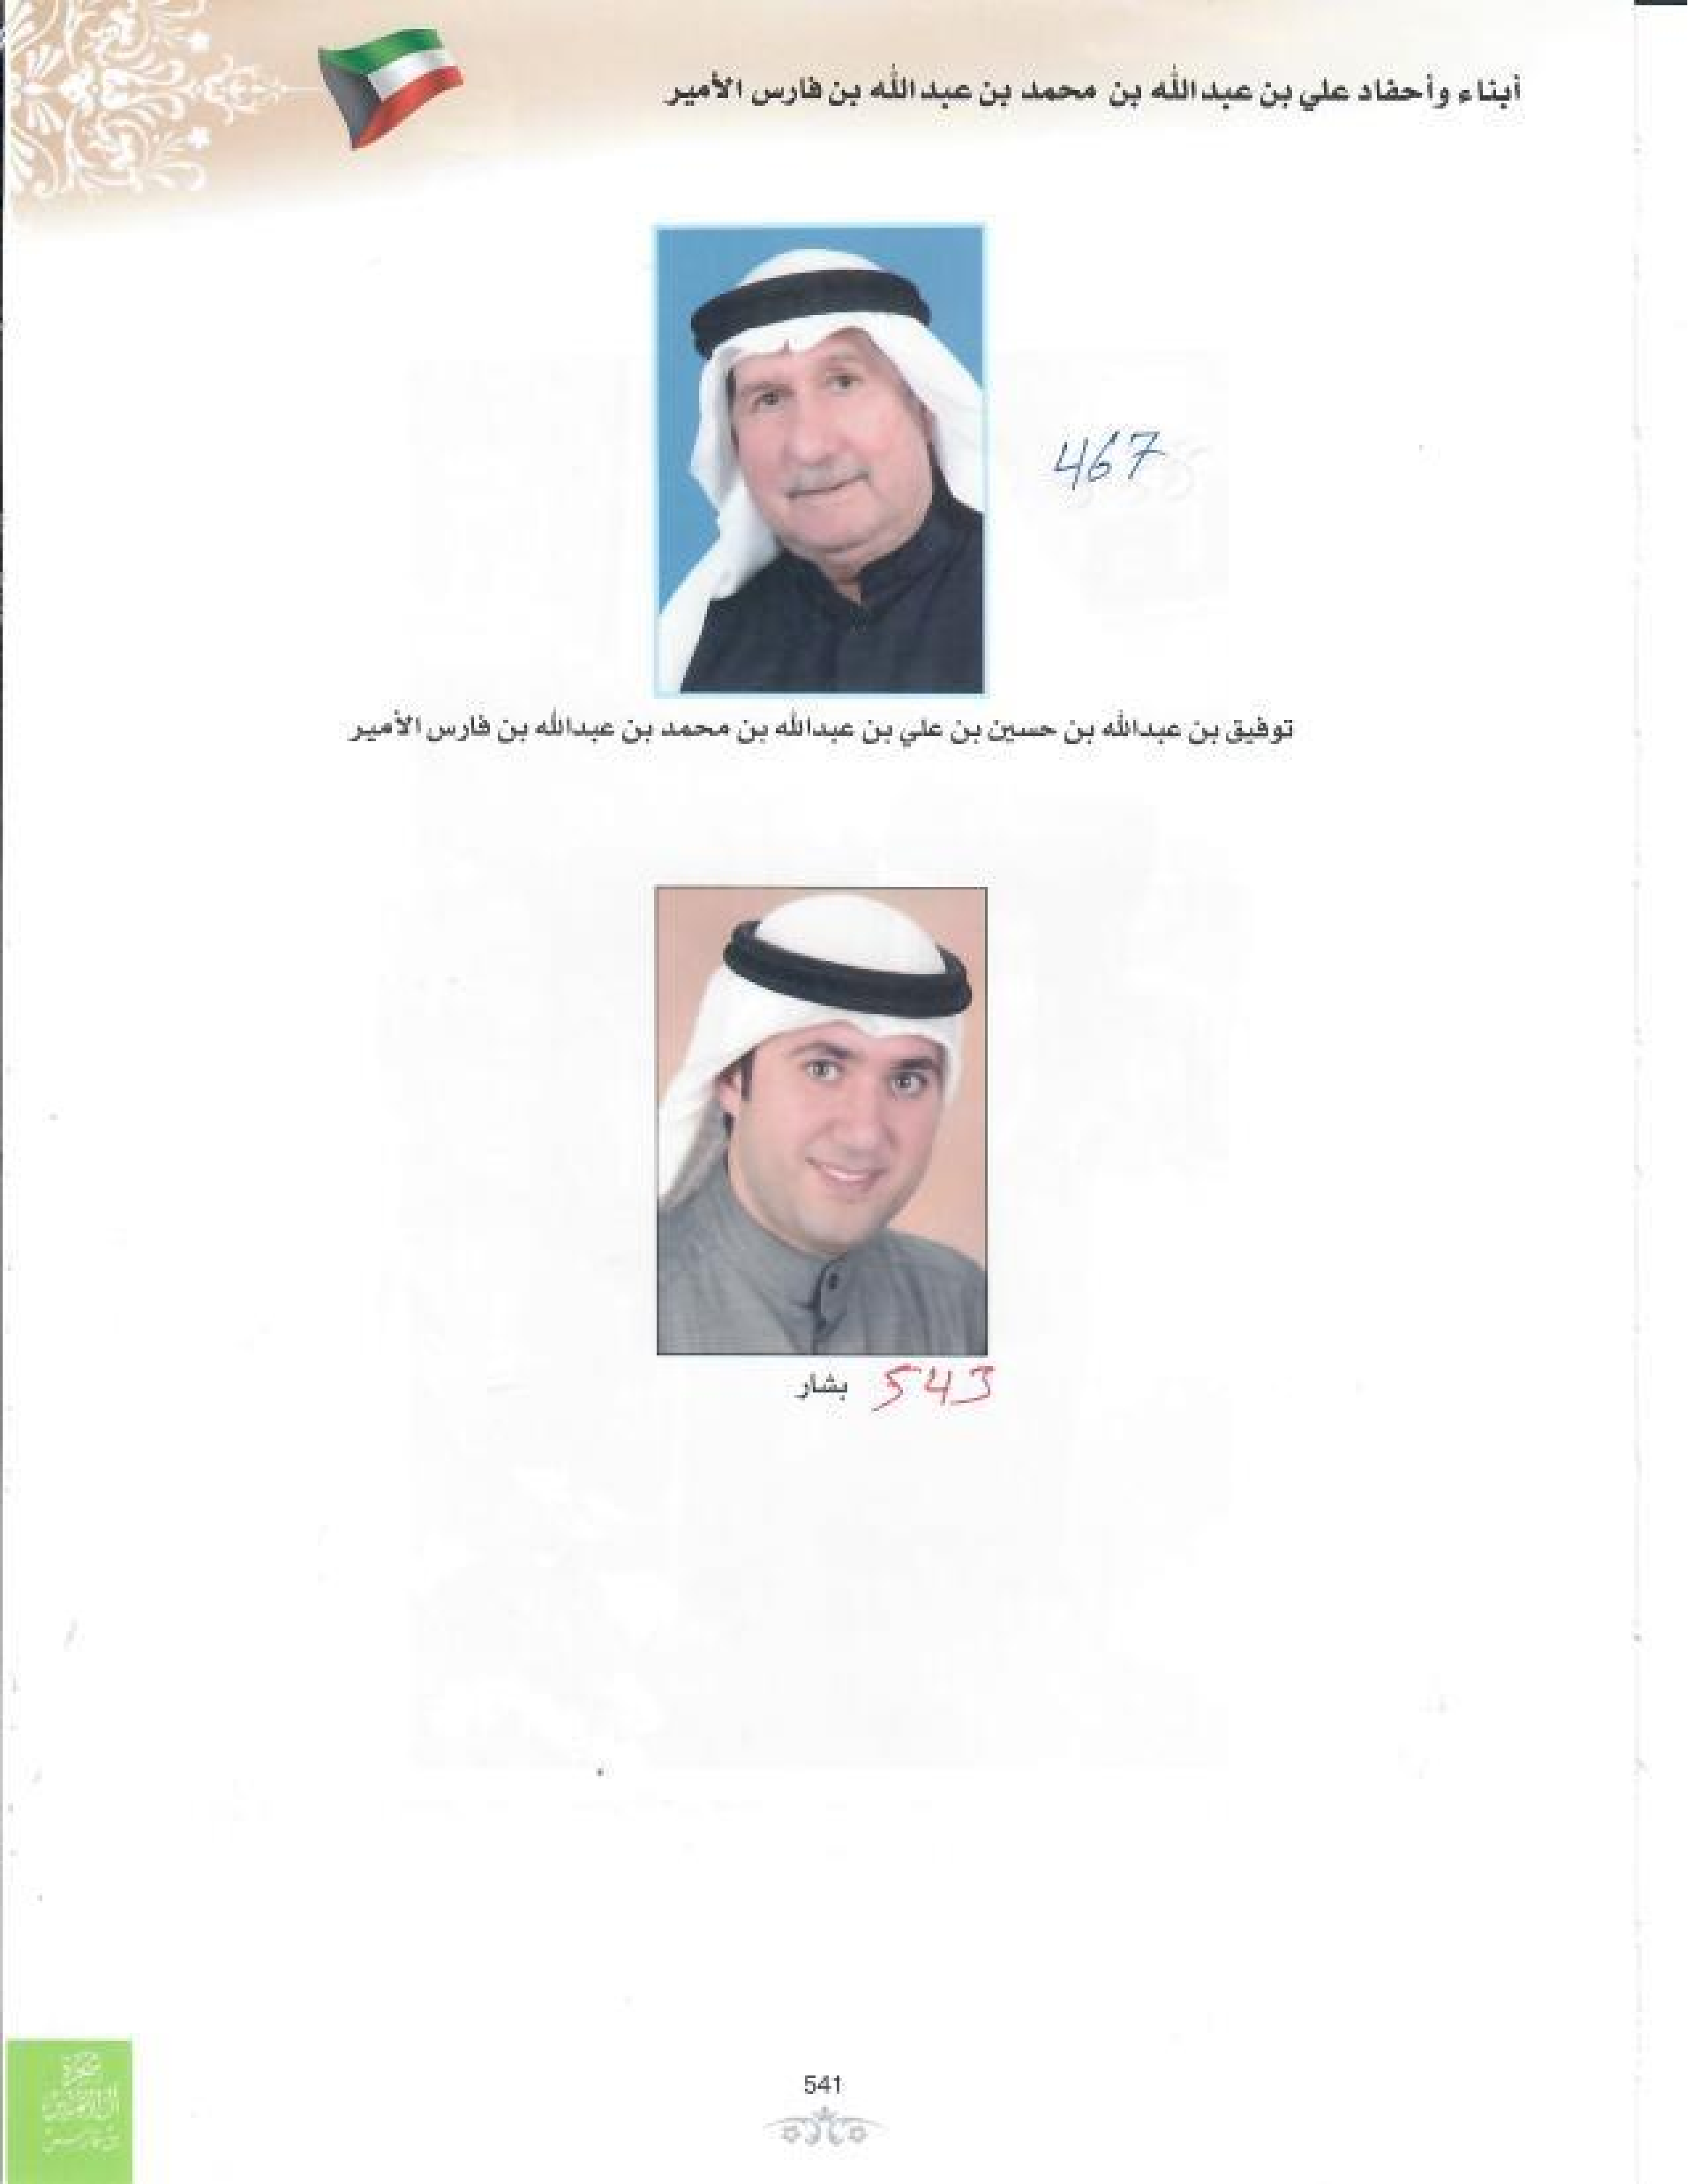 أبناء وأحفاد علي بن عبدالله بن محمد بن عبدالله بن فارس الأمير
467
توفيق بن عبدالله بن حسين بن علي بن عبدالله بن محمد بن عبدالله بن فارس الأمير
بشار 543
541